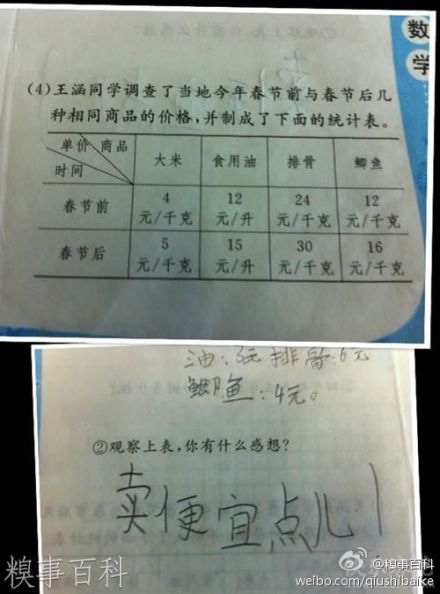 数
学
(4)王涵同学调查了当地今年春节前与春节后几
种相同商品的价格,并制成了下面的统计表。
单价 商品 时间 大米 食用油 排骨 鲫鱼
春节前 4元/千克 12元/升 24元/千克 12元/千克
春节后 5元/千克 15元/升 30元/千克 16元/千克
油:3元 排骨:6元
鲫鱼:4元。
②观察上表,你有什么感想?
卖便宜点儿
糗事百科
@糗事百科
weibo.com/qiushibaike